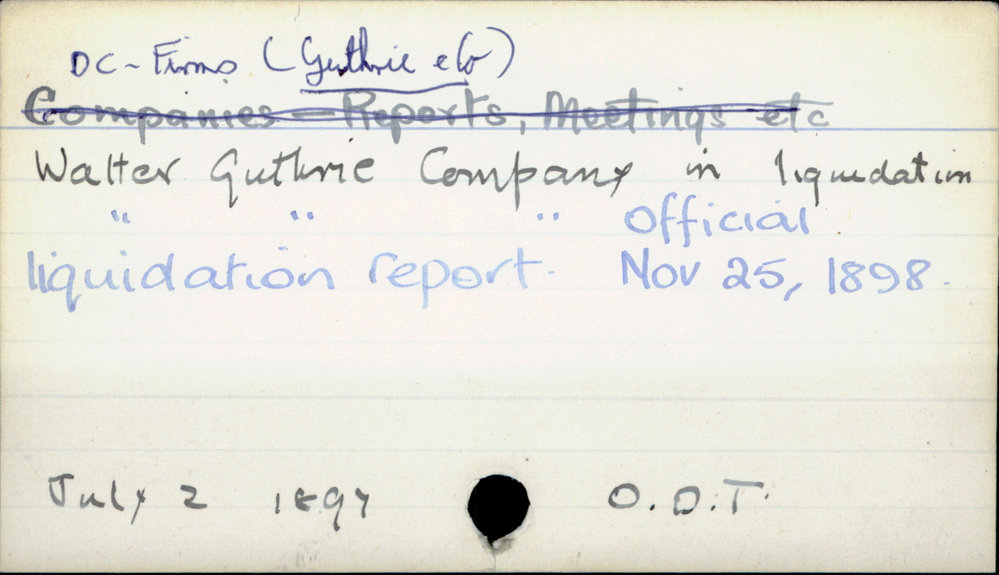 DC - Firms (Guthrie etc)
Companies - Reports, Meetings etc
Walter Guthrie Company in liquidation
" " " Official
liquidation report. Nov 25, 1898.
July 2 1897 O.D.T.